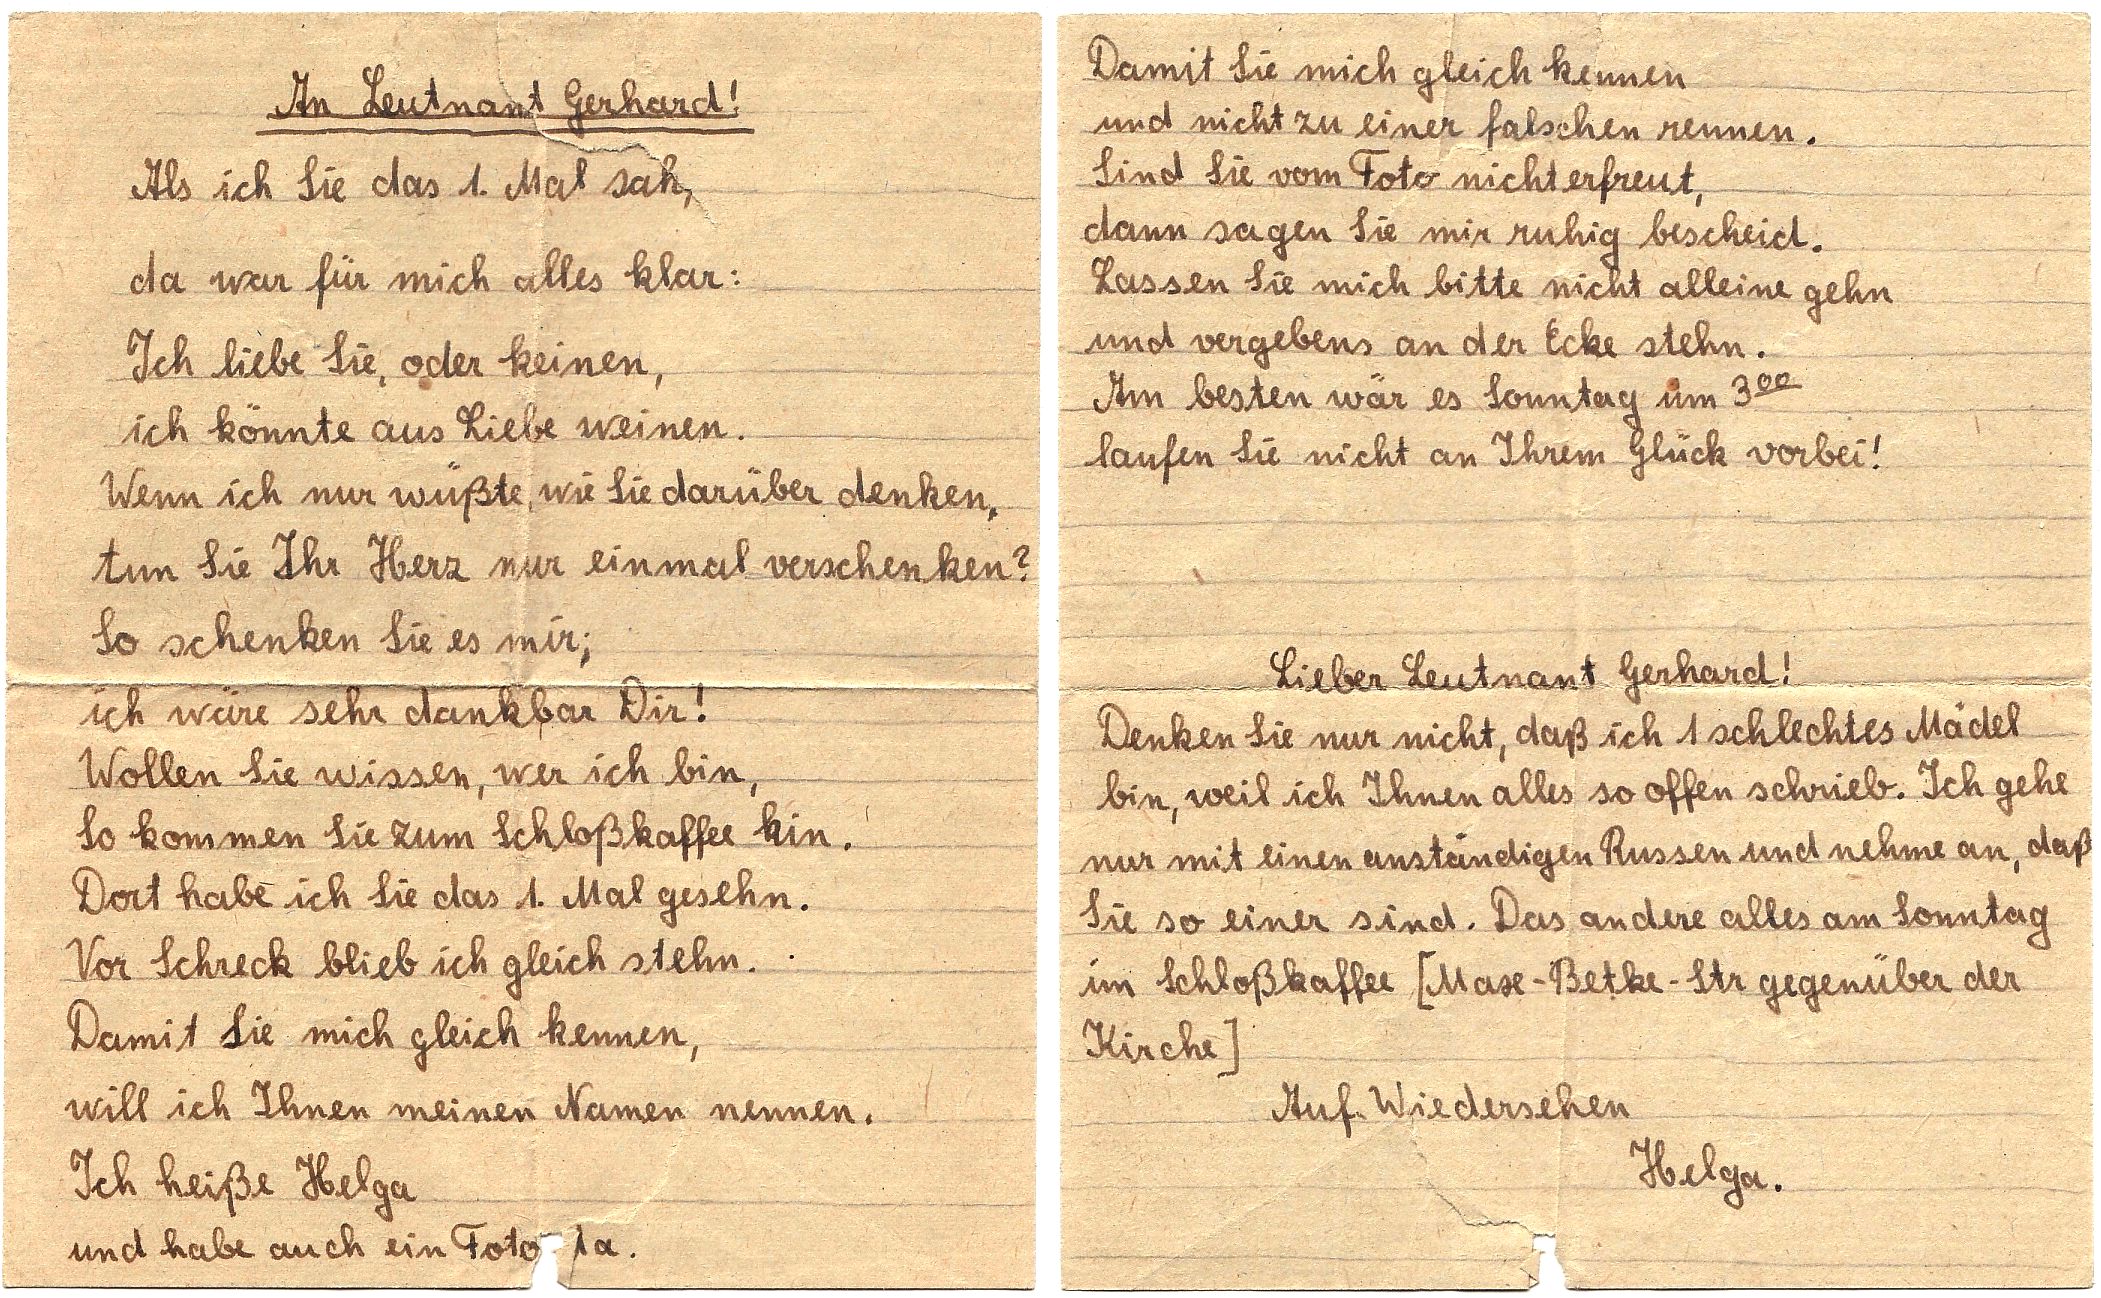 An Leutnant Gerhard!
Als ich Sie das 1. Mal sah,
da war für mich alles klar:
Ich liebe Sie, oder keinen,
ich könnte aus Liebe weinen.
Wenn ich nur wüßte, wie Sie darüber denken,
tun Sie Ihr Herz nur einmal verschenken?
So schenken Sie es mir;
ich wäre sehr dankbar Dir!
Wollen Sie wissen, wer ich bin,
So kommen Sie zum Schloßkaffee hin.
Dort habe ich Sie das 1. Mal gesehn.
Vor Schreck blieb ich gleich stehn.
Damit Sie mich gleich kennen,
will ich Ihnen meinen Namen nennen.
Ich heiße Helga
und habe auch ein Foto da.
Damit Sie mich gleich kennen
und nicht zu einer falschen rennen.
Sind Sie vom Foto nicht erfreut,
dann sagen Sie mir ruhig bescheid.
Lassen Sie mich bitte nicht alleine gehn
und vergebens an der Ecke stehn.
Am besten wär es Sonntag um 3⁰⁰
laufen Sie nicht an Ihrem Glück vorbei!
Lieber Leutnant Gerhard!
Denken Sie nur nicht, daß ich 1 schlechtes Mädel
bin, weil ich Ihnen alles so offen schrieb. Ich gehe
nur mit einen anständigen Russen und nehme an, daß
Sie so einer sind. Das andere alles am Sonntag
im Schloßkaffee [Max-Betke-Str gegenüber der
Kirche]
Auf Wiedersehen
Helga.